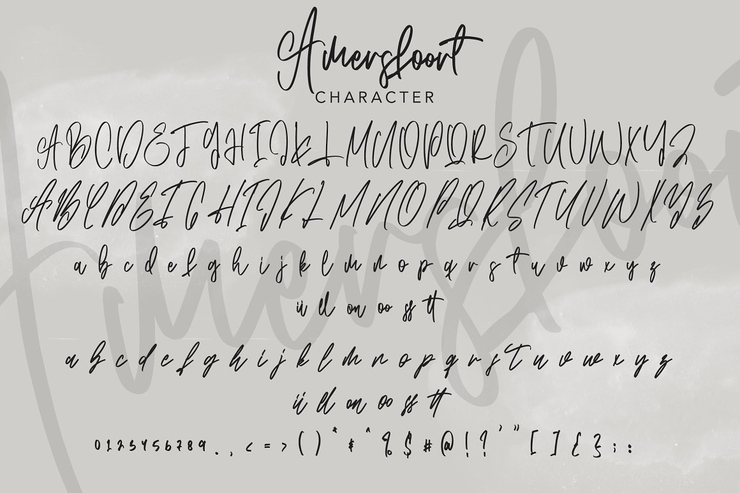 Amersfoort
CHARACTER
ABCDEFGHIJKLMNOPQRSTUVWXYZ
ABCDEFGHIJKLMNOPQRSTUVWXYZ
a b c d e f g h i j k l m n o p q r s t u v w x y z
ii ll on oo ss tt
a b c d e f g h i j k l m n o p q r s t u v w x y z
ii ll on oo ss tt
0 1 2 3 4 5 6 7 8 9 . , < = > ( ) * + ^ % $ # @ ! ? ' " [ ] { } ; :